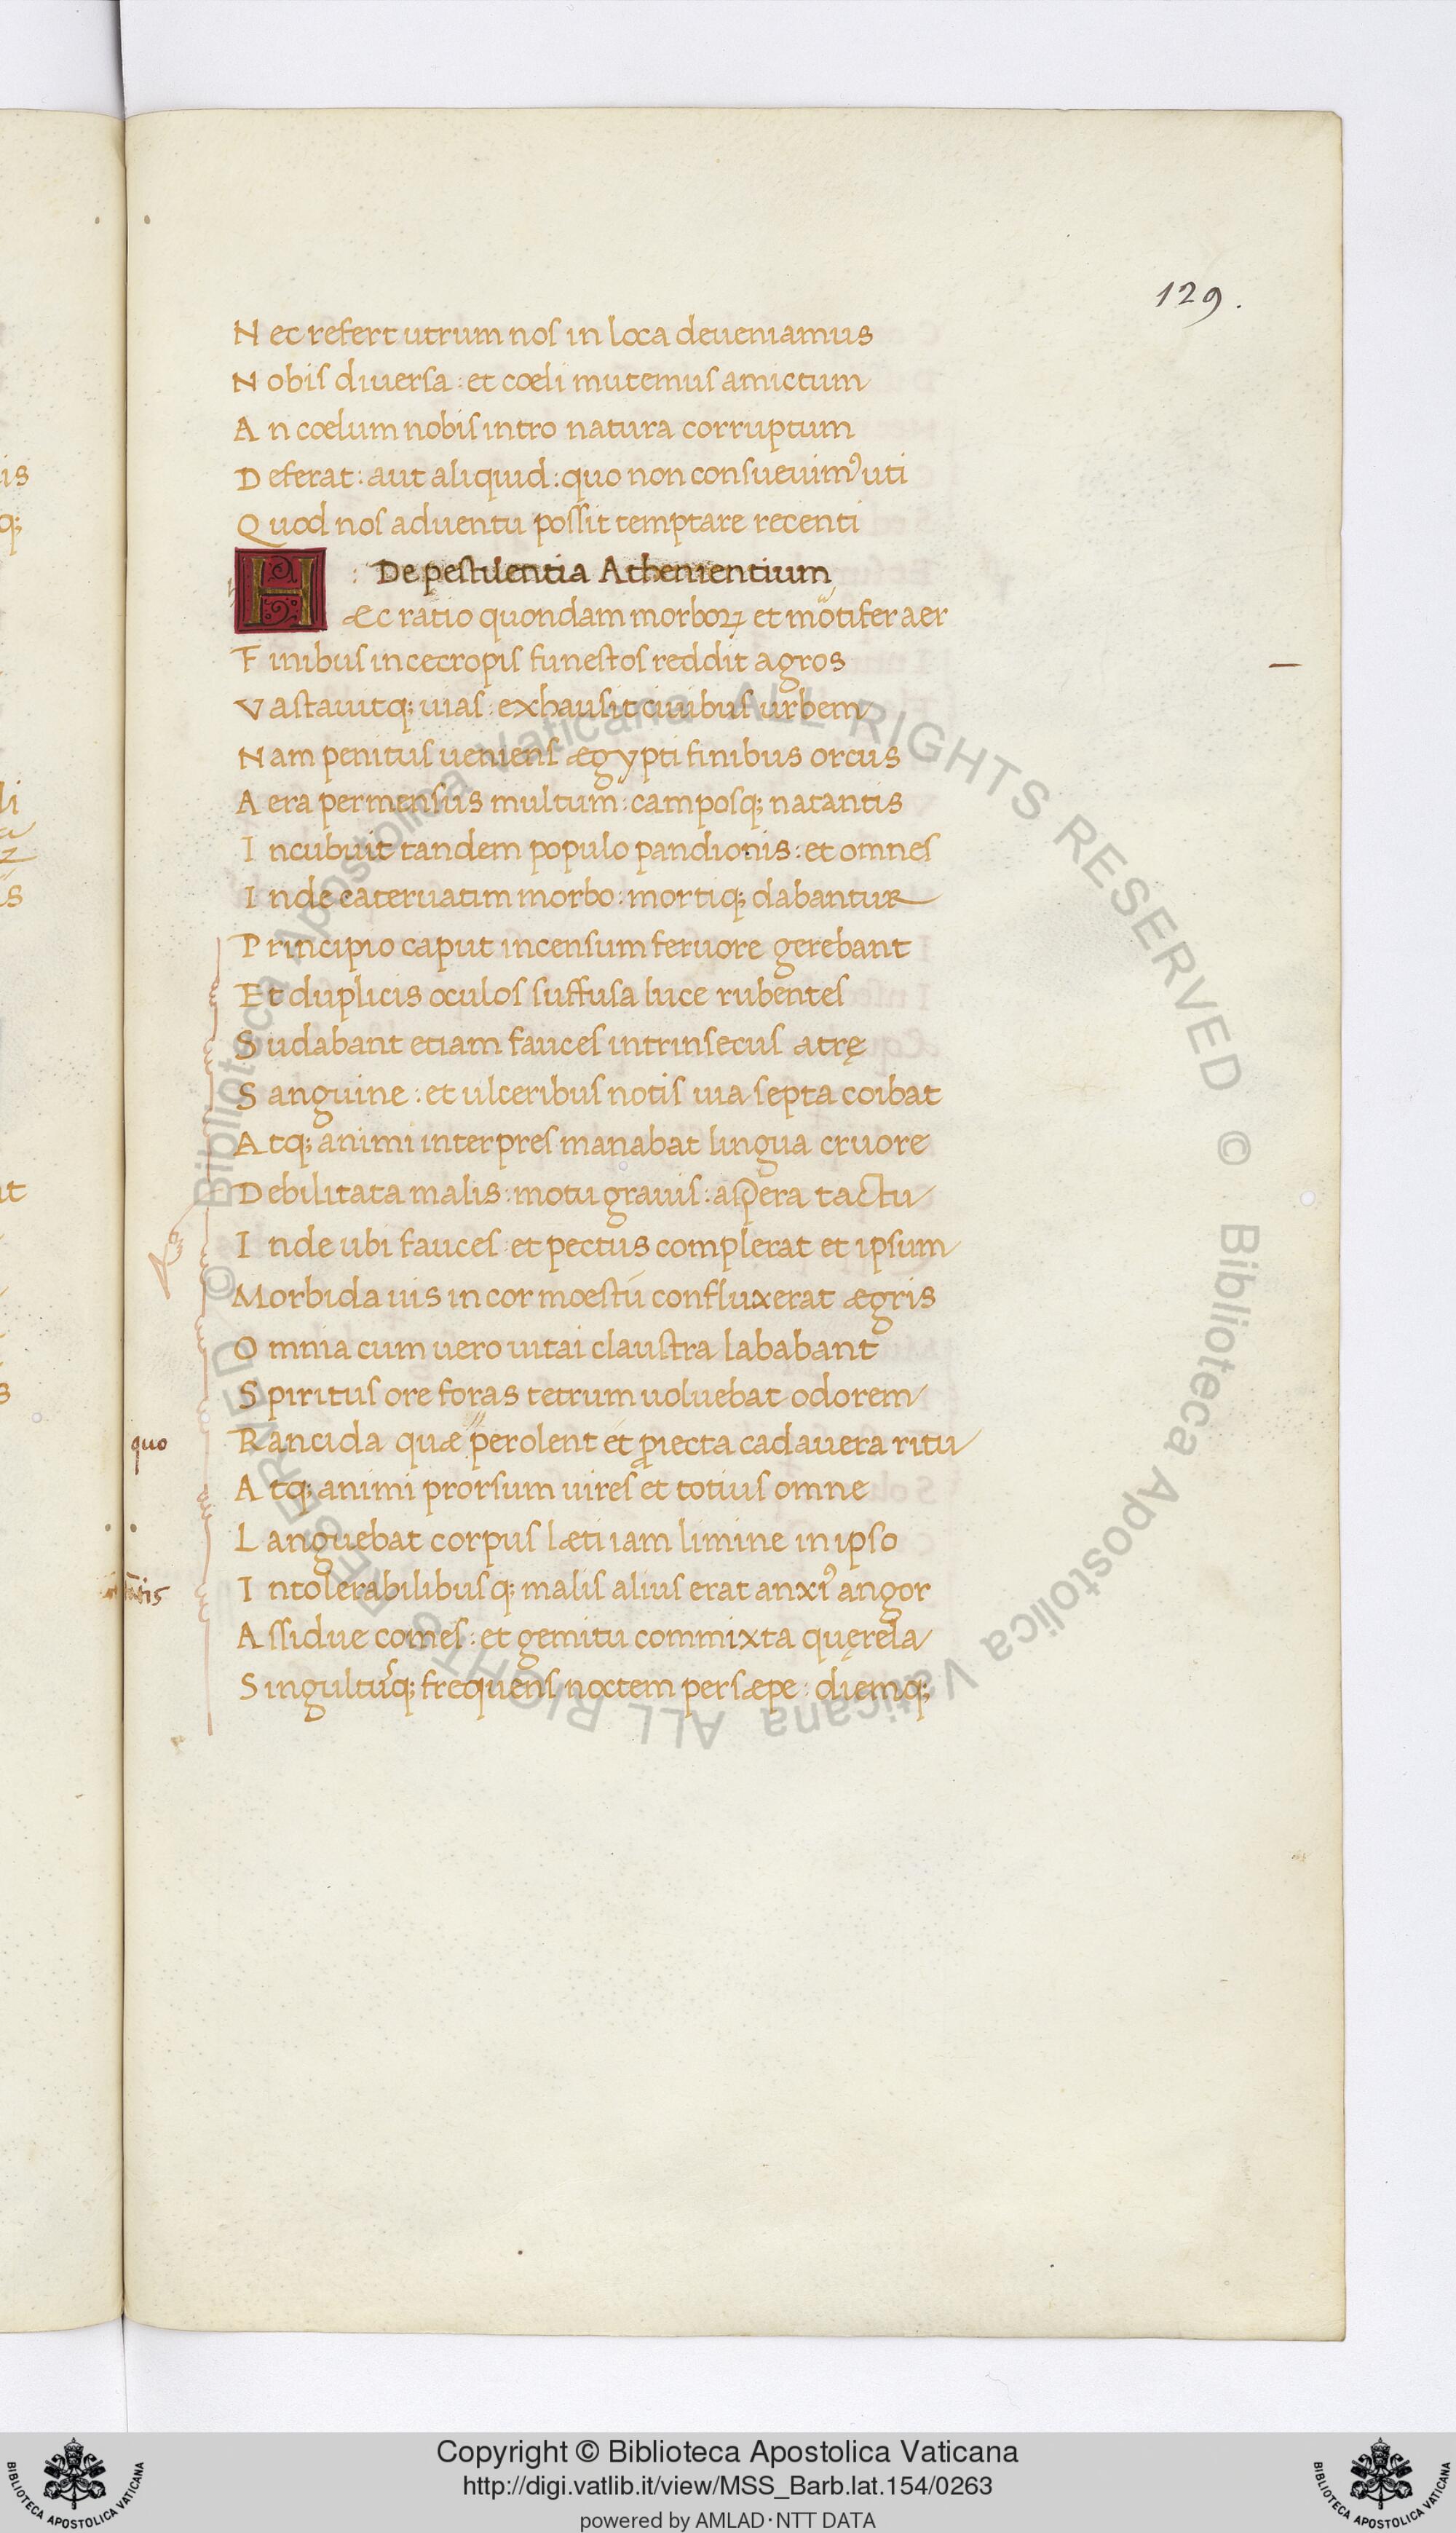 129.
Nec refert utrum nos in loca deueniamus
Nobis diuersa : et cœli mutemus amictum
An cœlum nobis intro natura corruptum
Deferat : aut aliquid : quo non consueuimꝰ uti
Quod nos aduentu possit temptare recenti
: De pestilentia Atheniensium
HÆc ratio quondam morboꝝ et mo̎tifer aer
Finibus in cecropis funestos reddit agros
Vastauitq; uias : exhausit ciuibus urbem
Nam penitus ueniens ægypti finibus orcus
Aera permensus multum : camposq; natantis
Incubuit tandem populo pandionis : et omnes
Inde cateruatim morbo : mortiq; dabantur
Principio caput incensum feruore gerebant
Et duplicis oculos suffusa luce rubentes
Sudabant etiam fauces intrinsecus atrę
Sanguine : et ulceribus notis uia septa coibat
Atq; animi interpres manabat lingua cruore
Debilitata malis : motu grauis : aspera tactu
Inde ubi fauces : et pectus complerat et ipsum
Morbida uis in cor mœstū confluxerat ægris
Omnia cum uero uitai claustra lababant
Spiritus ore foras tetrum uoluebat odorem
quo Rancida quæ perolent et ꝓiecta cadauera ritu
Atq; animi prorsum uires et totius omne
Languebat corpus læti iam limine in ipso
Intolerabilibusq; malis alius erat anxiꝰ angor
Assidue comes : et gemitu commixta quęrela
Singultusq; frequens noctem persæpe : diemq;
© Biblioteca Apostolica Vaticana ALL RIGHTS RESERVED © Biblioteca Apostolica Vaticana ALL RIGHTS RESERVED
Copyright © Biblioteca Apostolica Vaticana
http://digi.vatlib.it/view/MSS_Barb.lat.154/0263
powered by AMLAD·NTT DATA
BIBLIOTECA APOSTOLICA VATICANA
BIBLIOTECA APOSTOLICA VATICANA